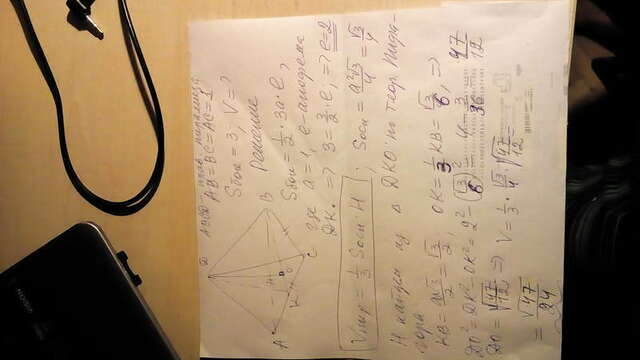 VISION
D ABCD – прав. пирамида
AB=BC=AC=1
Sбок = 3, V=?
Решение
A B K O C H
Sбок = 1/2 · 3a·e,
где a=1, e-апофема
DK. => 3 = 3/2 · e; => e=2
Vпир = 1/3 Sосн·H ; Sосн = a²√3/4 = √3/4
H найдем из Δ DKO по теор. Пифа-
гора
KB = a√3/2 = √3/2, OK = 1/3 KB = √3/6, =>
DO² = DK² - OK² = 2² - (√3/6)² = 4 - 3/36 = 47/12
DO = √47/12 => V = 1/3 · √3/4 · √47/12 =
= √47/24